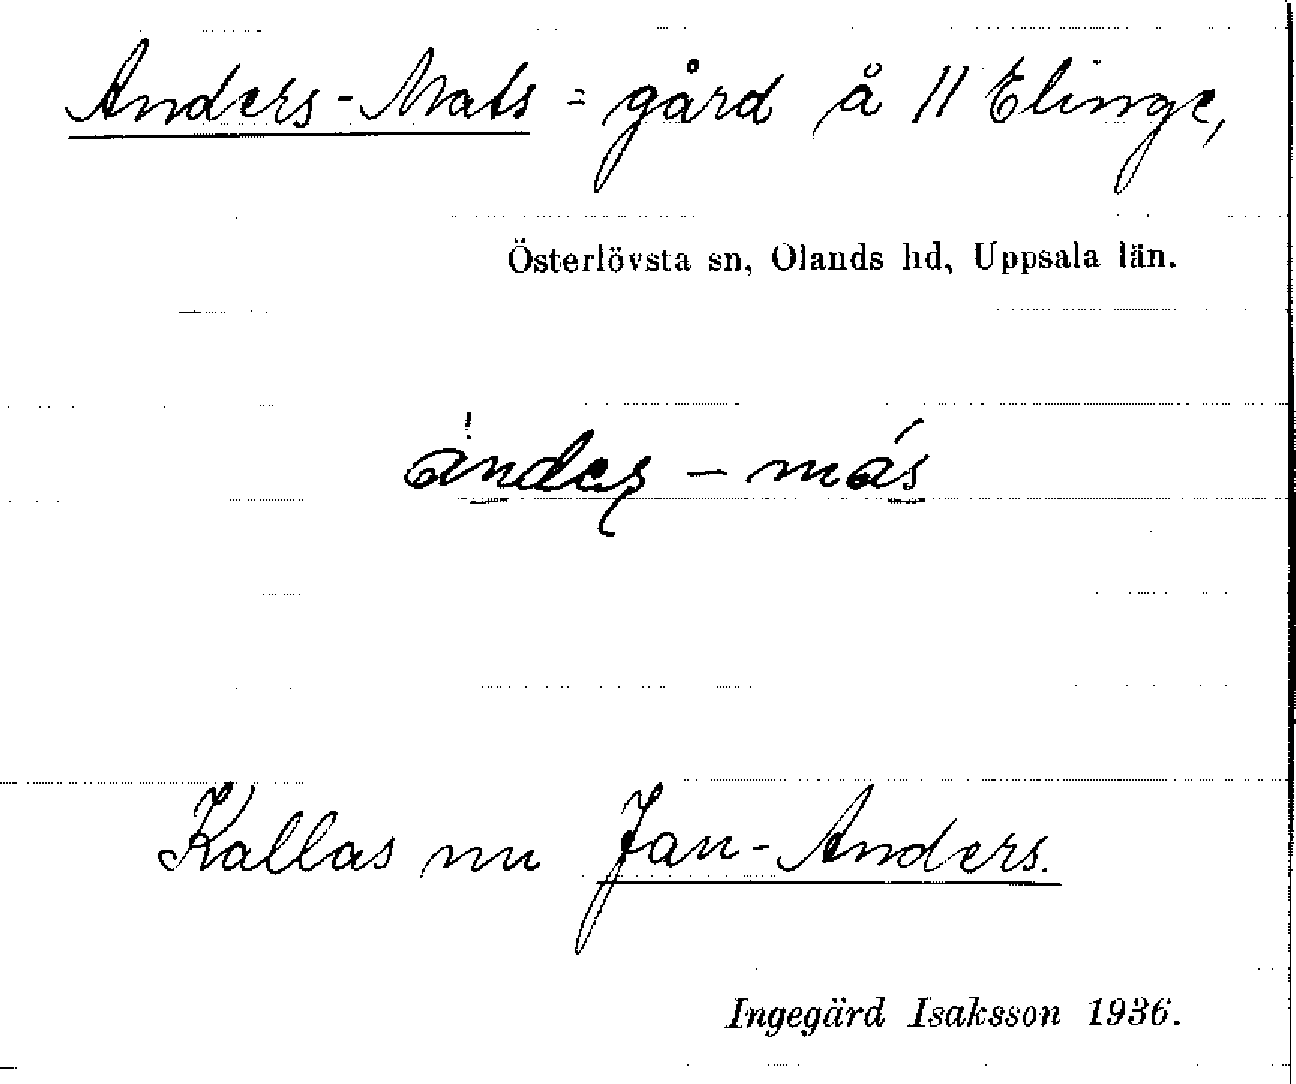 Anders-Mats = gård å 11 Elinge,
Österlövsta sn, Olands hd, Uppsala län.
andeʂ – más
Kallas nu Jan-Anders.
Ingegärd Isaksson 1936.